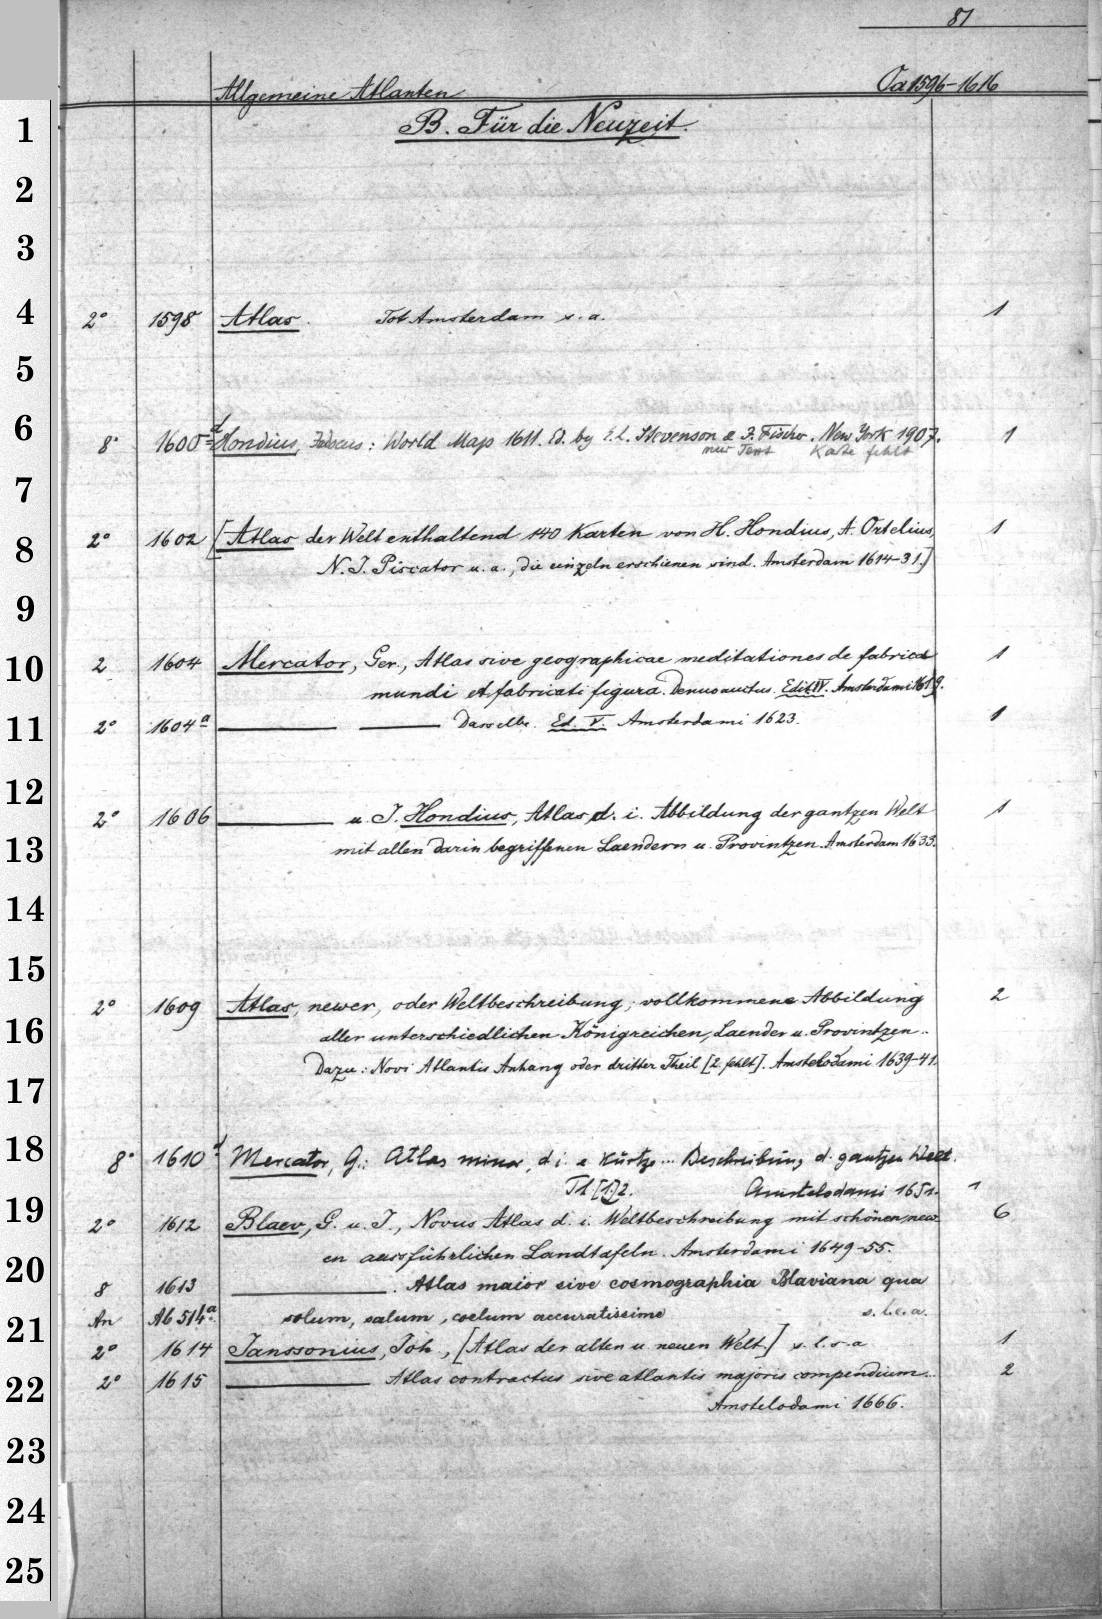 81
Allgemeine Atlanten Oa 1596-1616
B. Für die Neuzeit.
1
2
3
4
5
6
7
8
9
10
11
12
13
14
15
16
17
18
19
20
21
22
23
24
25
2° 1598 Atlas. Tot Amsterdam s. a. 1
8° 1600 d Hondius, Jodocus: World Map 1611. Ed. by E. L. Stevenson & J. Fischer. New York 1907. 1
nur Text Karte fehlt
2° 1602 [Atlas der Welt enthaltend 140 Karten von H. Hondius, A. Ortelius, 1
N. J. Piscator u. a., die einzeln erschienen sind. Amsterdam 1614-31.]
2 1604 Mercator, Ger., Atlas sive geographicae meditationes de fabrica 1
mundi et fabricati figura. Denuo auctus. Edit. IV. Amsterdami 1619.
2° 1604 a Dasselbe. Ed. V. Amsterdami 1623. 1
2° 1606 u. J. Hondius, Atlas, d. i. Abbildung der gantzen Welt 1
mit allen darin begriffenen Laendern u. Provintzen. Amsterdam 1633.
2° 1609 Atlas, newer, oder Weltbeschreibung, vollkommene Abbildung 2
aller unterschiedlichen Königreichen, Laender u. Provintzen..
Dazu: Novi Atlantis Anhang oder dritter Theil [2. fehlt]. Amstelodami 1639-41.
8° 1610 d Mercator, G.: Atlas minor, d i. e kurtze ... Beschreibung d. gantzen Welt.
Tl [1.] 2. Amstelodami 1651. 1
2° 1612 Blaev, G. u. J., Novus Atlas d. i. Weltbeschreibung mit schönen new 6
en aussführlichen Landtafeln. Amsterdami 1649-55.
8 1613 . Atlas maior sive cosmographia Blaviana qua
An Ab 514 a solum, salum, coelum accuratissime s. l. e. a.
2° 1614 Janssonius, Joh., [Atlas der alten u neuen Welt.] s. l. s. a 1
2° 1615 Atlas contractus sive atlantis majoris compendium.. 2
Amstelodami 1666.